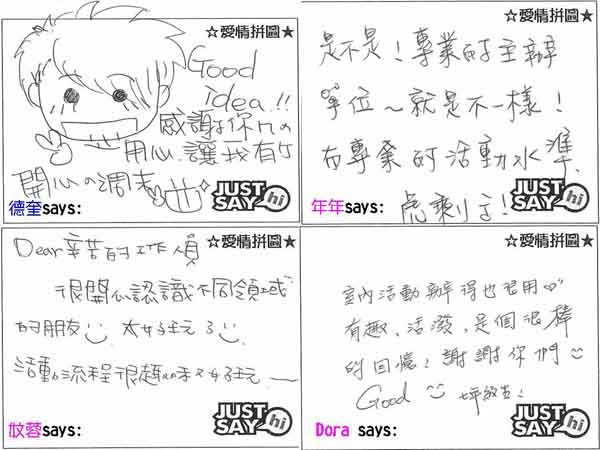 ☆愛情拼圖★
Good
idea!!
感謝你們の
用心.讓我有ケ
開心の週末
JUST
SAY hi
德奎says:
☆愛情拼圖★
是不是!專業的主辦
單位~就是不一樣!
有專業的活動水準.
JUST
SAY hi
年年says:
☆愛情拼圖★
Dear辛苦的工作人員
很開心認識不同領域
的朋友 太好玩了
活動流程很趣味又好玩
JUST
SAY hi
妏蓉says:
☆愛情拼圖★
室內活動辦得也很用心
有趣、活潑,是個很棒
的回憶!謝謝你們
Good
JUST
SAY hi
Dora says: